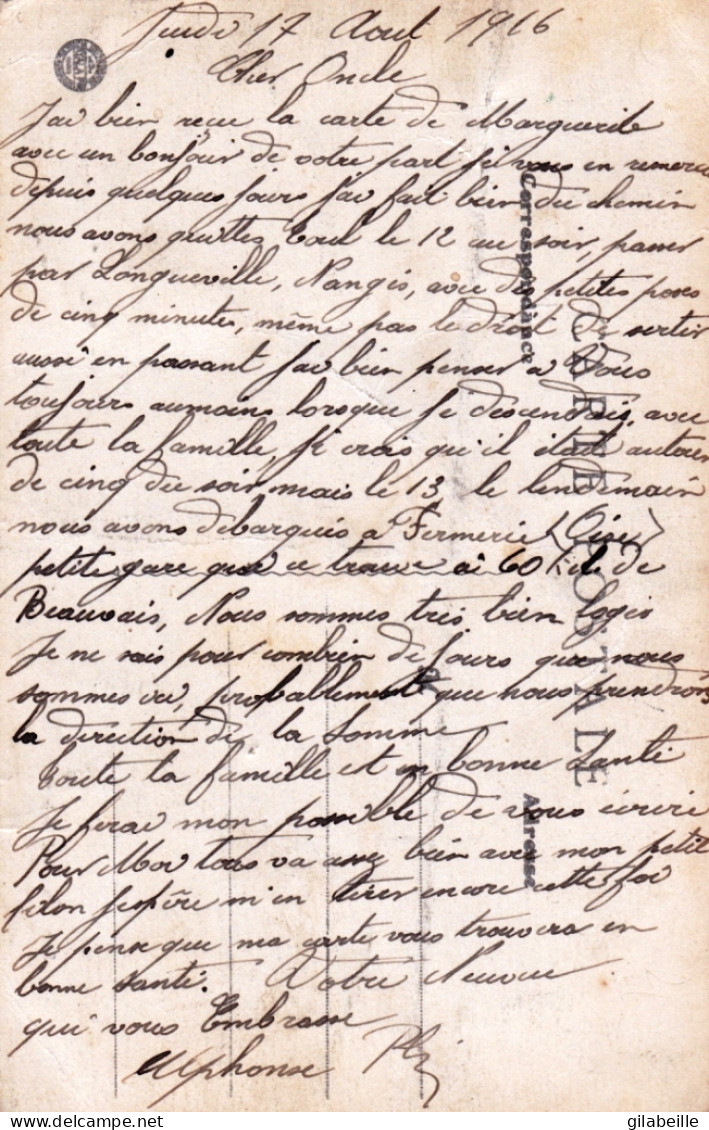 Jeudi 17 Aout 1916
Cher Oncle
J'ai bien reçue la carte de Marguerite
avec un bonjour de votre part je vous en remerci
depuis quelques jours j'ai fait bien du chemin
nous avons quittés Toul le 12 au soir, passer
par Longueville, Nangis, avec des petites poses
de cinq minutes, même pas le droit de sortir
aussi en passant j'ai bien penser a Vous
toujours aumains lorsque je descendais, avec
toute la famille, Je crois qu'il était autour
de cinq du soir mais le 13 le lendemain
nous avons débarqués a Formerie (Oise)
petite gare que ce trouve à 60 Kil. de
Beauvais, Nous sommes très bien logés
Je ne sais pour combien de jours que nous
sommes ici, probablement que nous prendrons
la direction de la Somme
toute la famille est en bonne Santé
Je ferai mon possible de vous écrire
Pour Moi tous va assez bien avec mon petit
filon j'espère m'en tirer encore cette foi
Je pense que ma carte vous trouvera en
bonne santé. Votre Neuveu
qui vous Embrasse
Alphonse
CARTE POSTALE
Correspondance
Adresse
delcampe.net
gilabeille